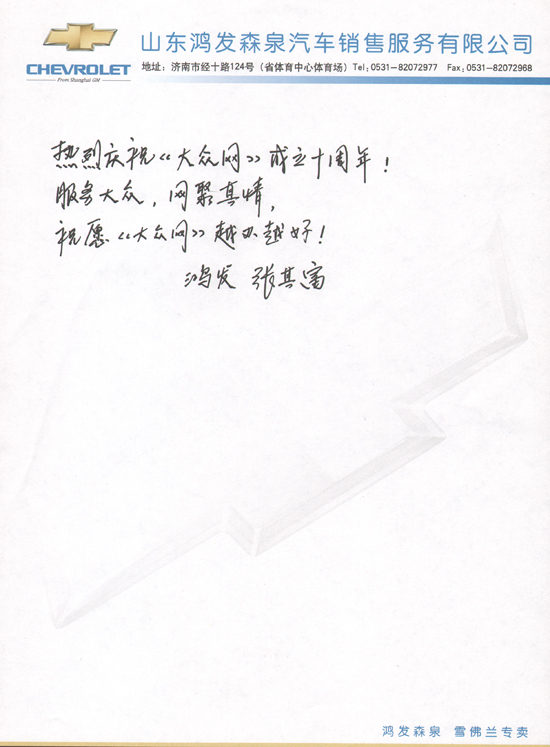 山东鸿发森泉汽车销售服务有限公司
CHEVROLET
From Shanghai GM
地址：济南市经十路124号（省体育中心体育场）Tel:0531-82072977 Fax:0531-82072968
热烈庆祝《大众网》成立十周年！
服务大众，网聚真情，
祝愿《大众网》越办越好！
鸿发 张其富
鸿发森泉 雪佛兰专卖